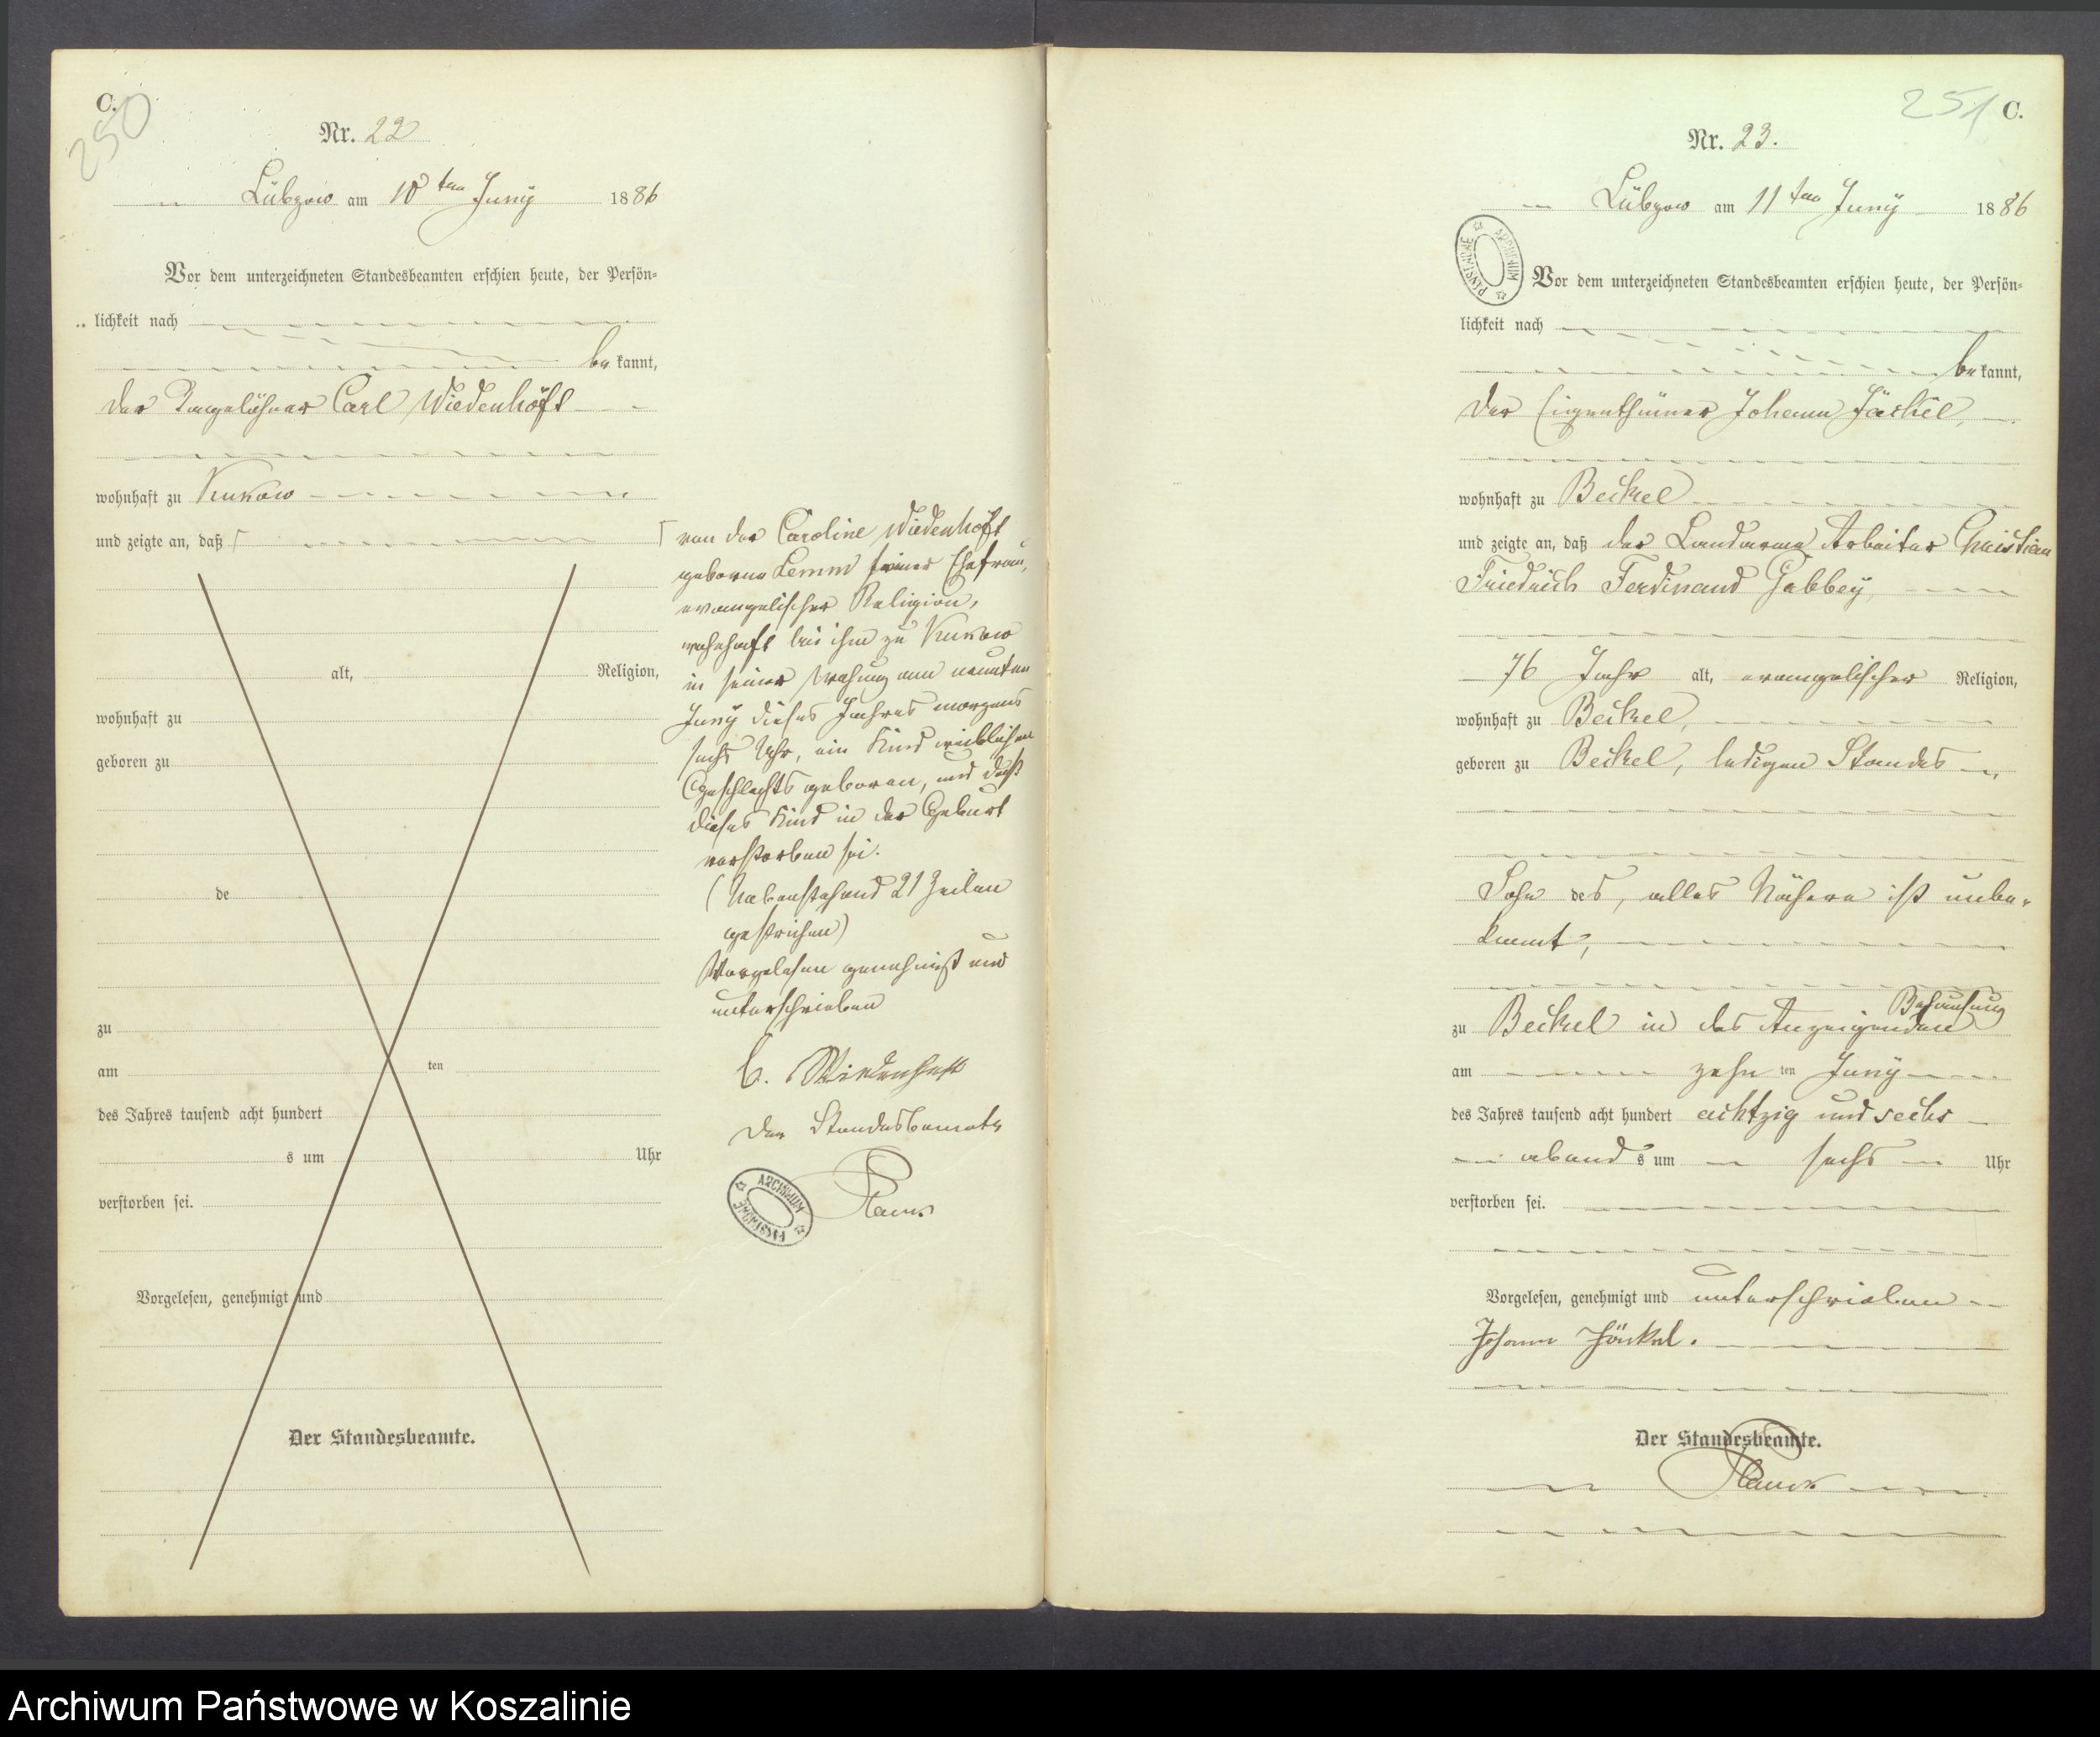 C.
250
Nr. 22
Lübzow am 10ten Juny 1886
Vor dem unterzeichneten Standesbeamten erschien heute, der Persön-
lichkeit nach
be kannt,
der Tagelöhner Carl Wiedenhöft
wohnhaft zu Kukow
und zeigte an, daß
alt, Religion,
wohnhaft zu
geboren zu
de
zu
am ten
des Jahres tausend acht hundert
s um Uhr
verstorben sei.
Vorgelesen, genehmigt und
Der Standesbeamte.
von der Caroline Wiedenhöft
geborne Lemm seiner Ehefrau,
evangelischer Religion,
wohnhaft bei ihm zu Kukow
in seiner Wohnung am neunten
Juny dieses Jahres morgens
sechs Uhr, ein Kind weiblichen
Geschlechts geboren, und daß
dieses Kind in der Geburt
verstorben sei.
(Nebenstehend 21 Zeilen
gestrichen)
Vorgelesen genehmigt und
unterschrieben
C. Wiedenhöft
Der Standesbeamte
ARCHIWUM PAŃSTWOWE
251 C.
Nr. 23.
Lübzow am 11ten Juny 1886
ARCHIWUM PAŃSTWOWE
Vor dem unterzeichneten Standesbeamten erschien heute, der Persön-
lichkeit nach
be kannt,
der Eigenthümer Johann Jäckel,
wohnhaft zu Beckel
und zeigte an, daß der Landarme Arbeiter Christian
Friedrich Ferdinand Gabbey
76 Jahr alt, evangelischer Religion,
wohnhaft zu Beckel,
geboren zu Beckel, ledigen Standes
Sohn des, alles Nähere ist unbe-
kannt,
zu Beckel in des Anzeigenden Behausung
am zehn ten Juny
des Jahres tausend acht hundert achtzig und sechs
abend s um sechs Uhr
verstorben sei.
Vorgelesen, genehmigt und unterschrieben
Johann Jäckel.
Der Standesbeamte.
Archiwum Państwowe w Koszalinie